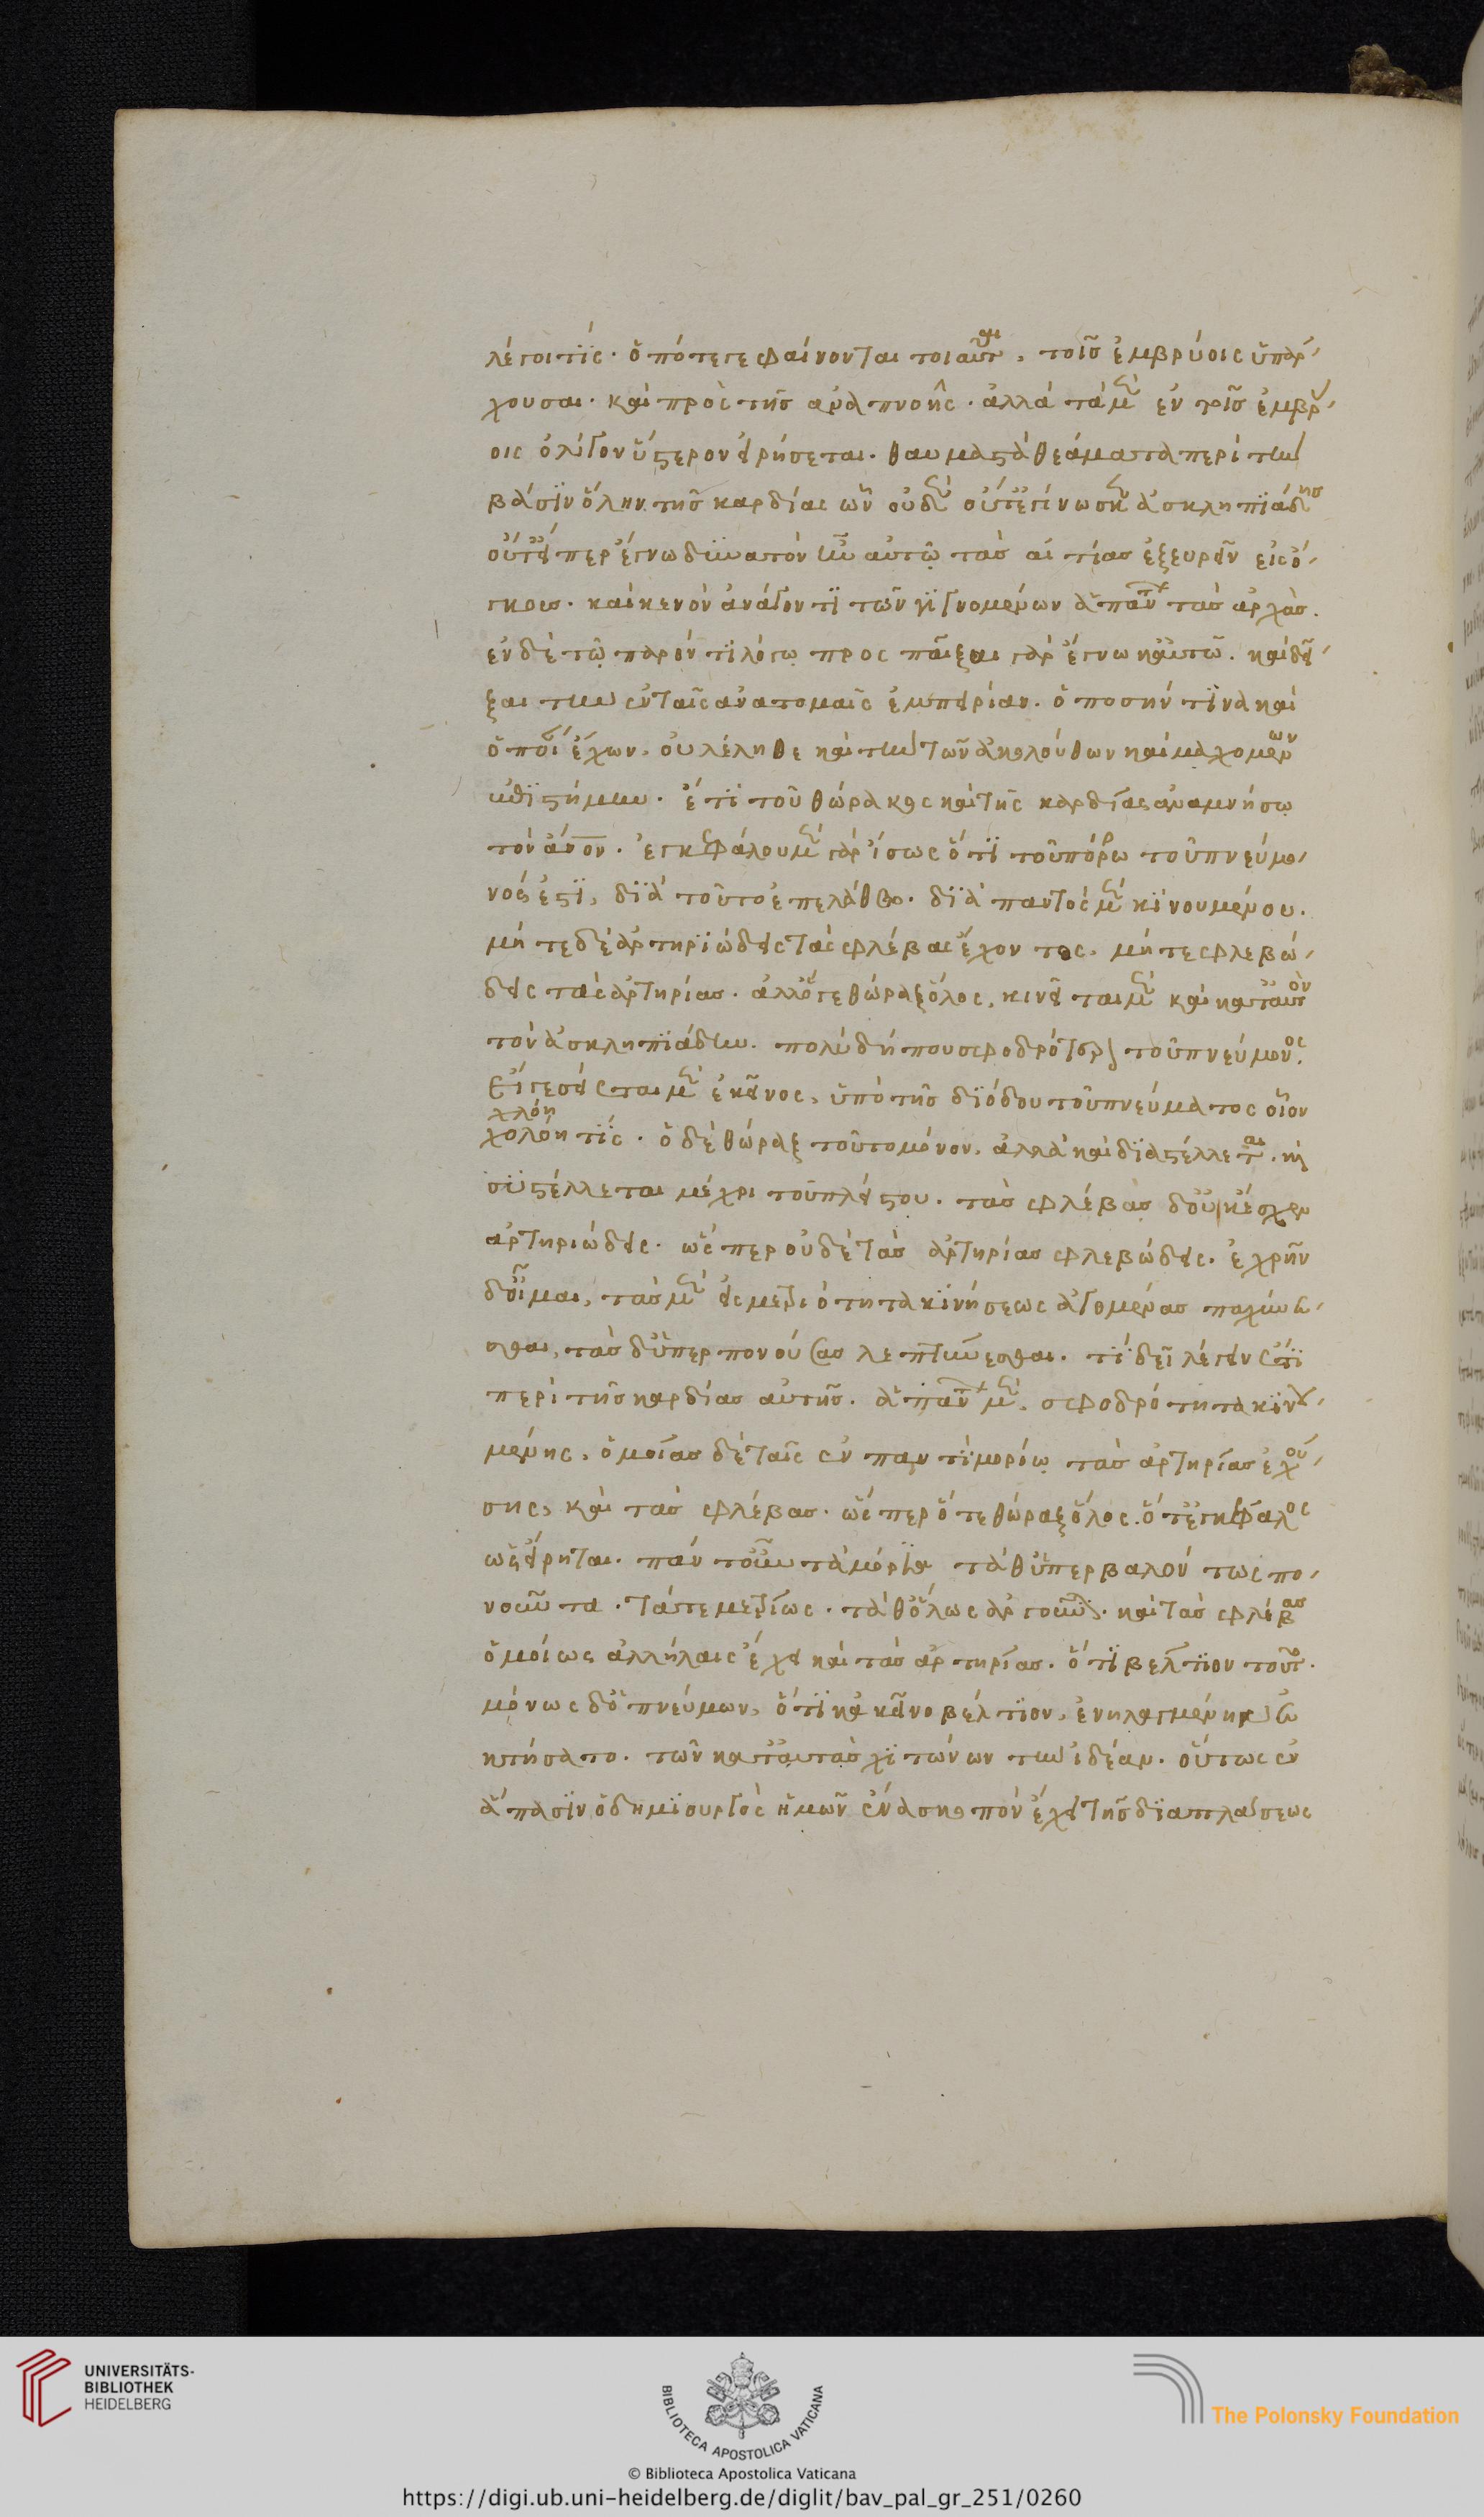 λέγοι τὶς. ὁπότε γε φαίνονται τοιαῦται, τοῖς ἐμβρύοις ὑπάρ-
χουσαι. καὶ πρὸ τῆς ἀναπνοῆς. ἀλλὰ τὰ μὲν ἐν τοῖς ἐμβρύ-
οις ὀλίγον ὕστερον εἰρήσεται. θαυμαστὰ θεάματα περὶ τὴν
βάσιν ὅλην τῆς καρδίας ὧν οὐδὲν οὔτ' ἐγίνωσκεν ἀσκληπιάδης
οὔτ' εἴπερ ἔγνω δυνατὸν ἦν αὐτῷ τὰς αἰτίας ἐξευρεῖν εἰς ὄ-
γκους. καὶ κενὸν ἀνάγοντι τῶν γιγνομένων ἁπάντων τὰς ἀρχάς.
ἐν δὲ τῷ παρόντι λόγῳ προσπαῖξαι γὰρ ἔγνωκ' αὐτῷ. καὶ δεῖ-
ξαι τὴν ἐν ταῖς ἀνατομαῖς ἐμπειρίαν. ὁποσην τινὰ καὶ
ὁποίαν ἔχων. οὐ λέληθε καὶ τὴν τῶν ἀκολούθων καὶ μαχομένων
ἐπιστήμην. ἔτι τοῦ θώρακος καὶ τῆς καρδίας ἀναμνήσω
τὸν ἄνον. ἐγκεφάλου μὲν γὰρ ἴσως ὅτι τοῦ πόρρω τοῦ πνεύμο-
νος ἐστι, διὰ τοῦτο ἐπελάθετο. διὰ παντὸς μὲν κινουμένου.
μήτε δὲ ἀρτηριώδεις τὰς φλέβας ἔχοντος. μήτε φλεβώ-
δεις τὰς ἀρτηρίας. ἀλλ' ὅ γε θώραξ ὅλος, κινεῖται μὲν καὶ κατ' αὐτὸν
τὸν ἀσκληπιάδην. πολὺ δήπου σφοδρότερον τοῦ πνεύμονος.
εἴ γε σείεται μὲν ἐκεῖνος, ὑπὸ τῆς διόδου τοῦ πνεύματος οἷον
χλόη
χολόη τίς. ὁ δὲ θώραξ τοῦτο μόνον. ἀλλὰ καὶ διαστέλλεται. καὶ
συστέλλεται μέχρι τοῦ πλείστου. τὰς φλέβας δ' οὐκ ἔσχεν
ἀρτηριώδεις. ὥσπερ οὐδὲ τὰς ἀρτηρίας φλεβώδεις. ἐχρῆν
δ' οἶμαι, τὰς μὲν εἰς μετριότητα κινήσεως ἀγομένας παχύνε-
σθαι, τὰς δ' ὑπερπονούσας λεπτύνεσθαι. τί δεῖ λέγειν ἔτι
περὶ τῆς καρδίας αὐτῆς. ἁπάντων μὲν. σφοδρότητα κινου-
μένης, ὁμοίας δὲ ταῖς ἐν παντὶ μορίῳ τὰς ἀρτηρίας ἐχού-
σης, καὶ τὰς φλέβας. ὥσπερ ὅ τε θώραξ ὅλος. ὅ τ' ἐγκέφαλος
ὡς εἴρηται. πάντ' οὖν τὰ μόρια τά θ' ὑπερβαλόντως πο-
νοῦντα. τά τε μετρίως. τά θ' ὅλως ἀργοῦντα. καὶ τὰς φλέβας
ὁμοίως ἀλλήλαις ἔχει καὶ τὰς ἀρτηρίας. ὅτι βέλτιον τοῦτο.
μόνως δ' ὁ πνεύμων, ὅτι κἀκεῖνο βέλτιον, ἐνηλλαγμένην
ἐκτήσατο. τῶν κατ' αὐτὰς χιτώνων τὴν ἰδέαν. οὕτως ἐν
ἅπασιν ὁ δημιουργὸς ἡμῶν ἕνα σκοπὸν ἔχει τῆς διαπλάσεως
UNIVERSITÄTS-
BIBLIOTHEK
HEIDELBERG
BIBLIOTECA APOSTOLICA VATICANA
The Polonsky Foundation
© Biblioteca Apostolica Vaticana
https://digi.ub.uni-heidelberg.de/diglit/bav_pal_gr_251/0260